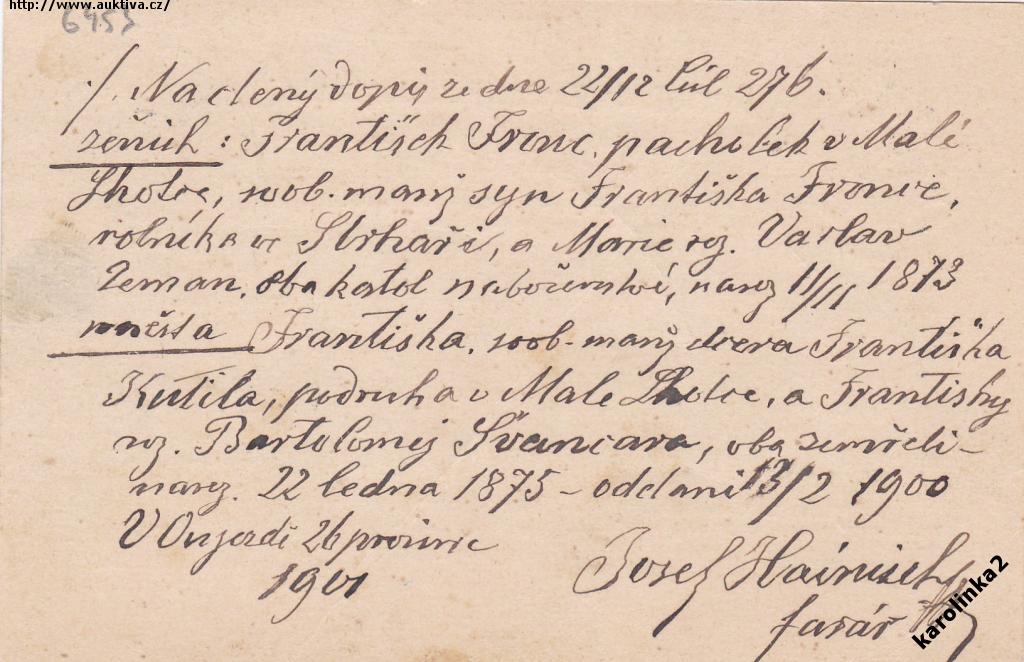 http://www.auktiva.cz/
6453
./. Na ctený dopis ze dne 22/12 čísl 276.
ženich : František Fronc, pacholek v Malé
Lhotce, soob. manž syn Františka Fronce,
rolníka ve Strhaři, a Marie roz. Vaclav
Zeman, oba katol naboženství, naroz 11/11 1873
nevěsta Františka, soob. manž dcera Františka
Kutila, podruha v Male Lhotce, a Františky
roz. Bartolomej Švancara, oba zemřeli -
naroz. 22 ledna 1875 - oddani 13/2 1900
V Oujezdě 26 prosince
1901
Josef Hainisch
farář
karolinka2